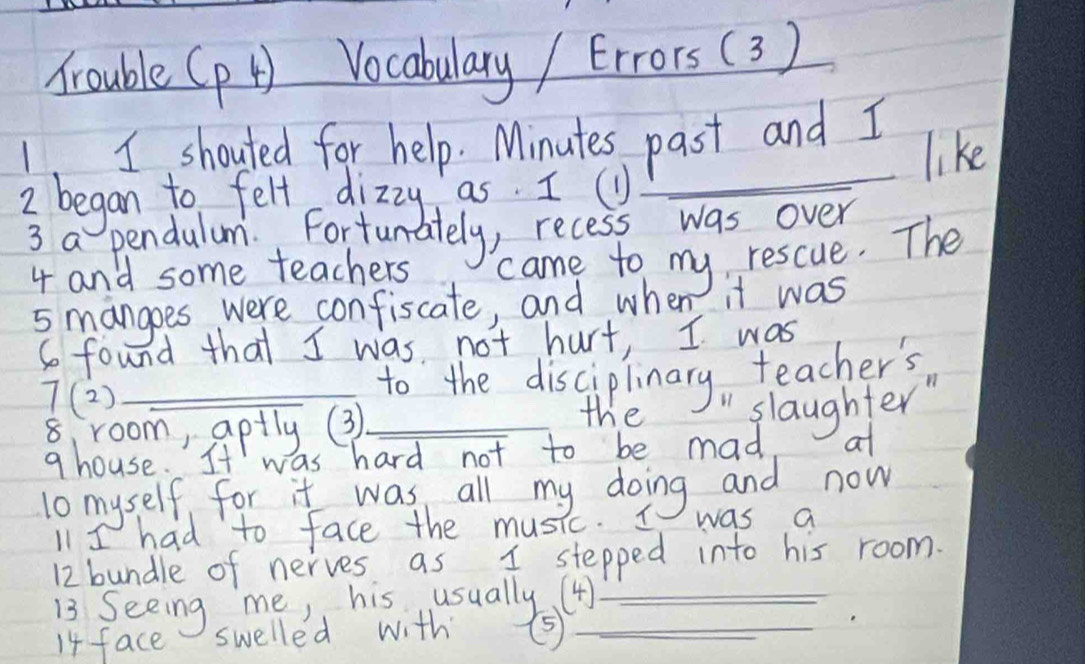 Trouble (p 4) Vocabulary / Errors (3)
1 I shouted for help. Minutes past and I
2 began to felt dizzy as I (1) ________ like
3 a pendulum. Fortunately, recess was over
4 and some teachers came to my rescue. The
5 mangoes were confiscate, and when it was
6 found that I was not hurt, I was
7 (2) ________ to the disciplinary teacher's
8 room, aptly (3) ________ the "slaughter"
9 house. It was hard not to be mad at
10 myself for it was all my doing and now
11 I had to face the music. I was a
12 bundle of nerves as I stepped into his room.
13 Seeing me, his usually (4) ________
14 face swelled with (5) ________.